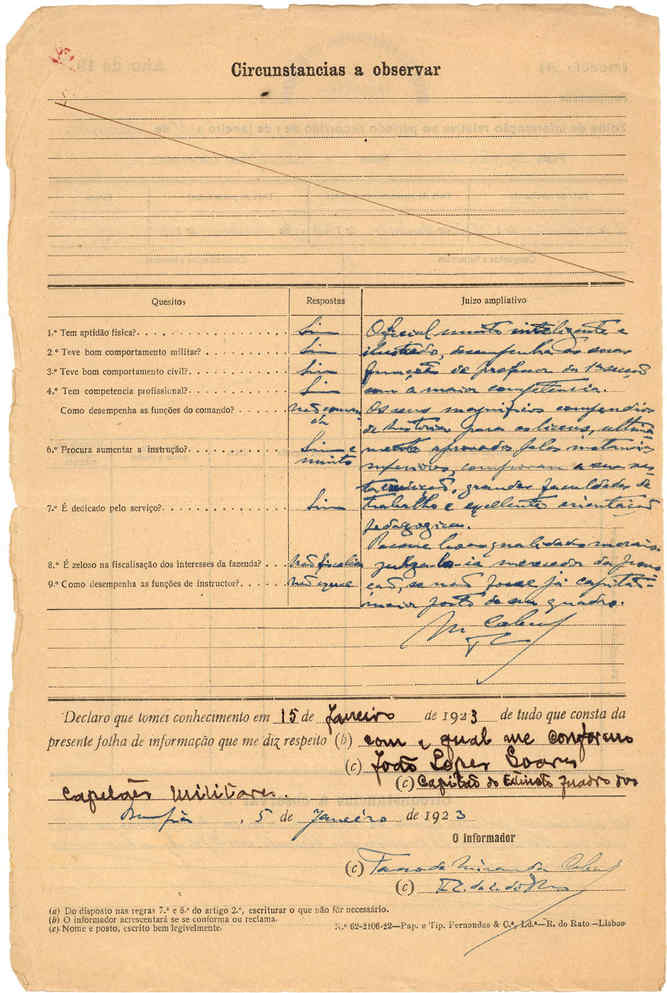 Circunstancias a observar
Quesitos
Respostas
Juizo ampliativo
1.º Tem aptidão fisica?
Sim
2.º Teve bom comportamento militar?
Sim
3.º Teve bom comportamento civil?
Sim
4.º Tem competencia profissional?
Sim
Como desempenha as funções do comando?
não coman
da
6.º Procura aumentar a instrução?
Sim e
muito
7.º É dedicado pelo serviço?
Sim
8.º É zeloso na fiscalisação dos interesses da fazenda?
não fiscalisa
9.º Como desempenha as funções de instructor?
não exerce
Oficial muito inteligente e
ilustrado, desempenha as suas
funções de professor da 1ª secção
com a maior competencia.
Os seus magnificos compendios
de historia para os liceus, ultima
mente aprovados pelas instancias
superiores, comprovam a sua
grandes faculdades de
trabalho e excellente orientação
pedagogica.
Possue boas qualidades moraes
julgando-o merecedor da promo
ção, se não fosse já capitão
maior posto do seu quadro.
Declaro que tomei conhecimento em 15 de Janeiro de 1923 de tudo que consta da
presente folha de informação que me diz respeito (b) com o qual me conformo
(c) João Lopes Soares
(c) Capitão do Extinto Quadro dos
Capelães Militares.
5 de Janeiro de 1923
O informador
(c)
(c)
(a) Do disposto nas regras 7.ª e 8.ª do artigo 2.º, escriturar o que não fôr necessário.
(b) O informador acrescentará se se conforma ou reclama.
(c) Nome e posto, escrito bem legivelmente.
N.º 62-2106-22—Pap. e Tip. Fernandes & C.ª, Ld.ª—R. do Rato—Lisboa